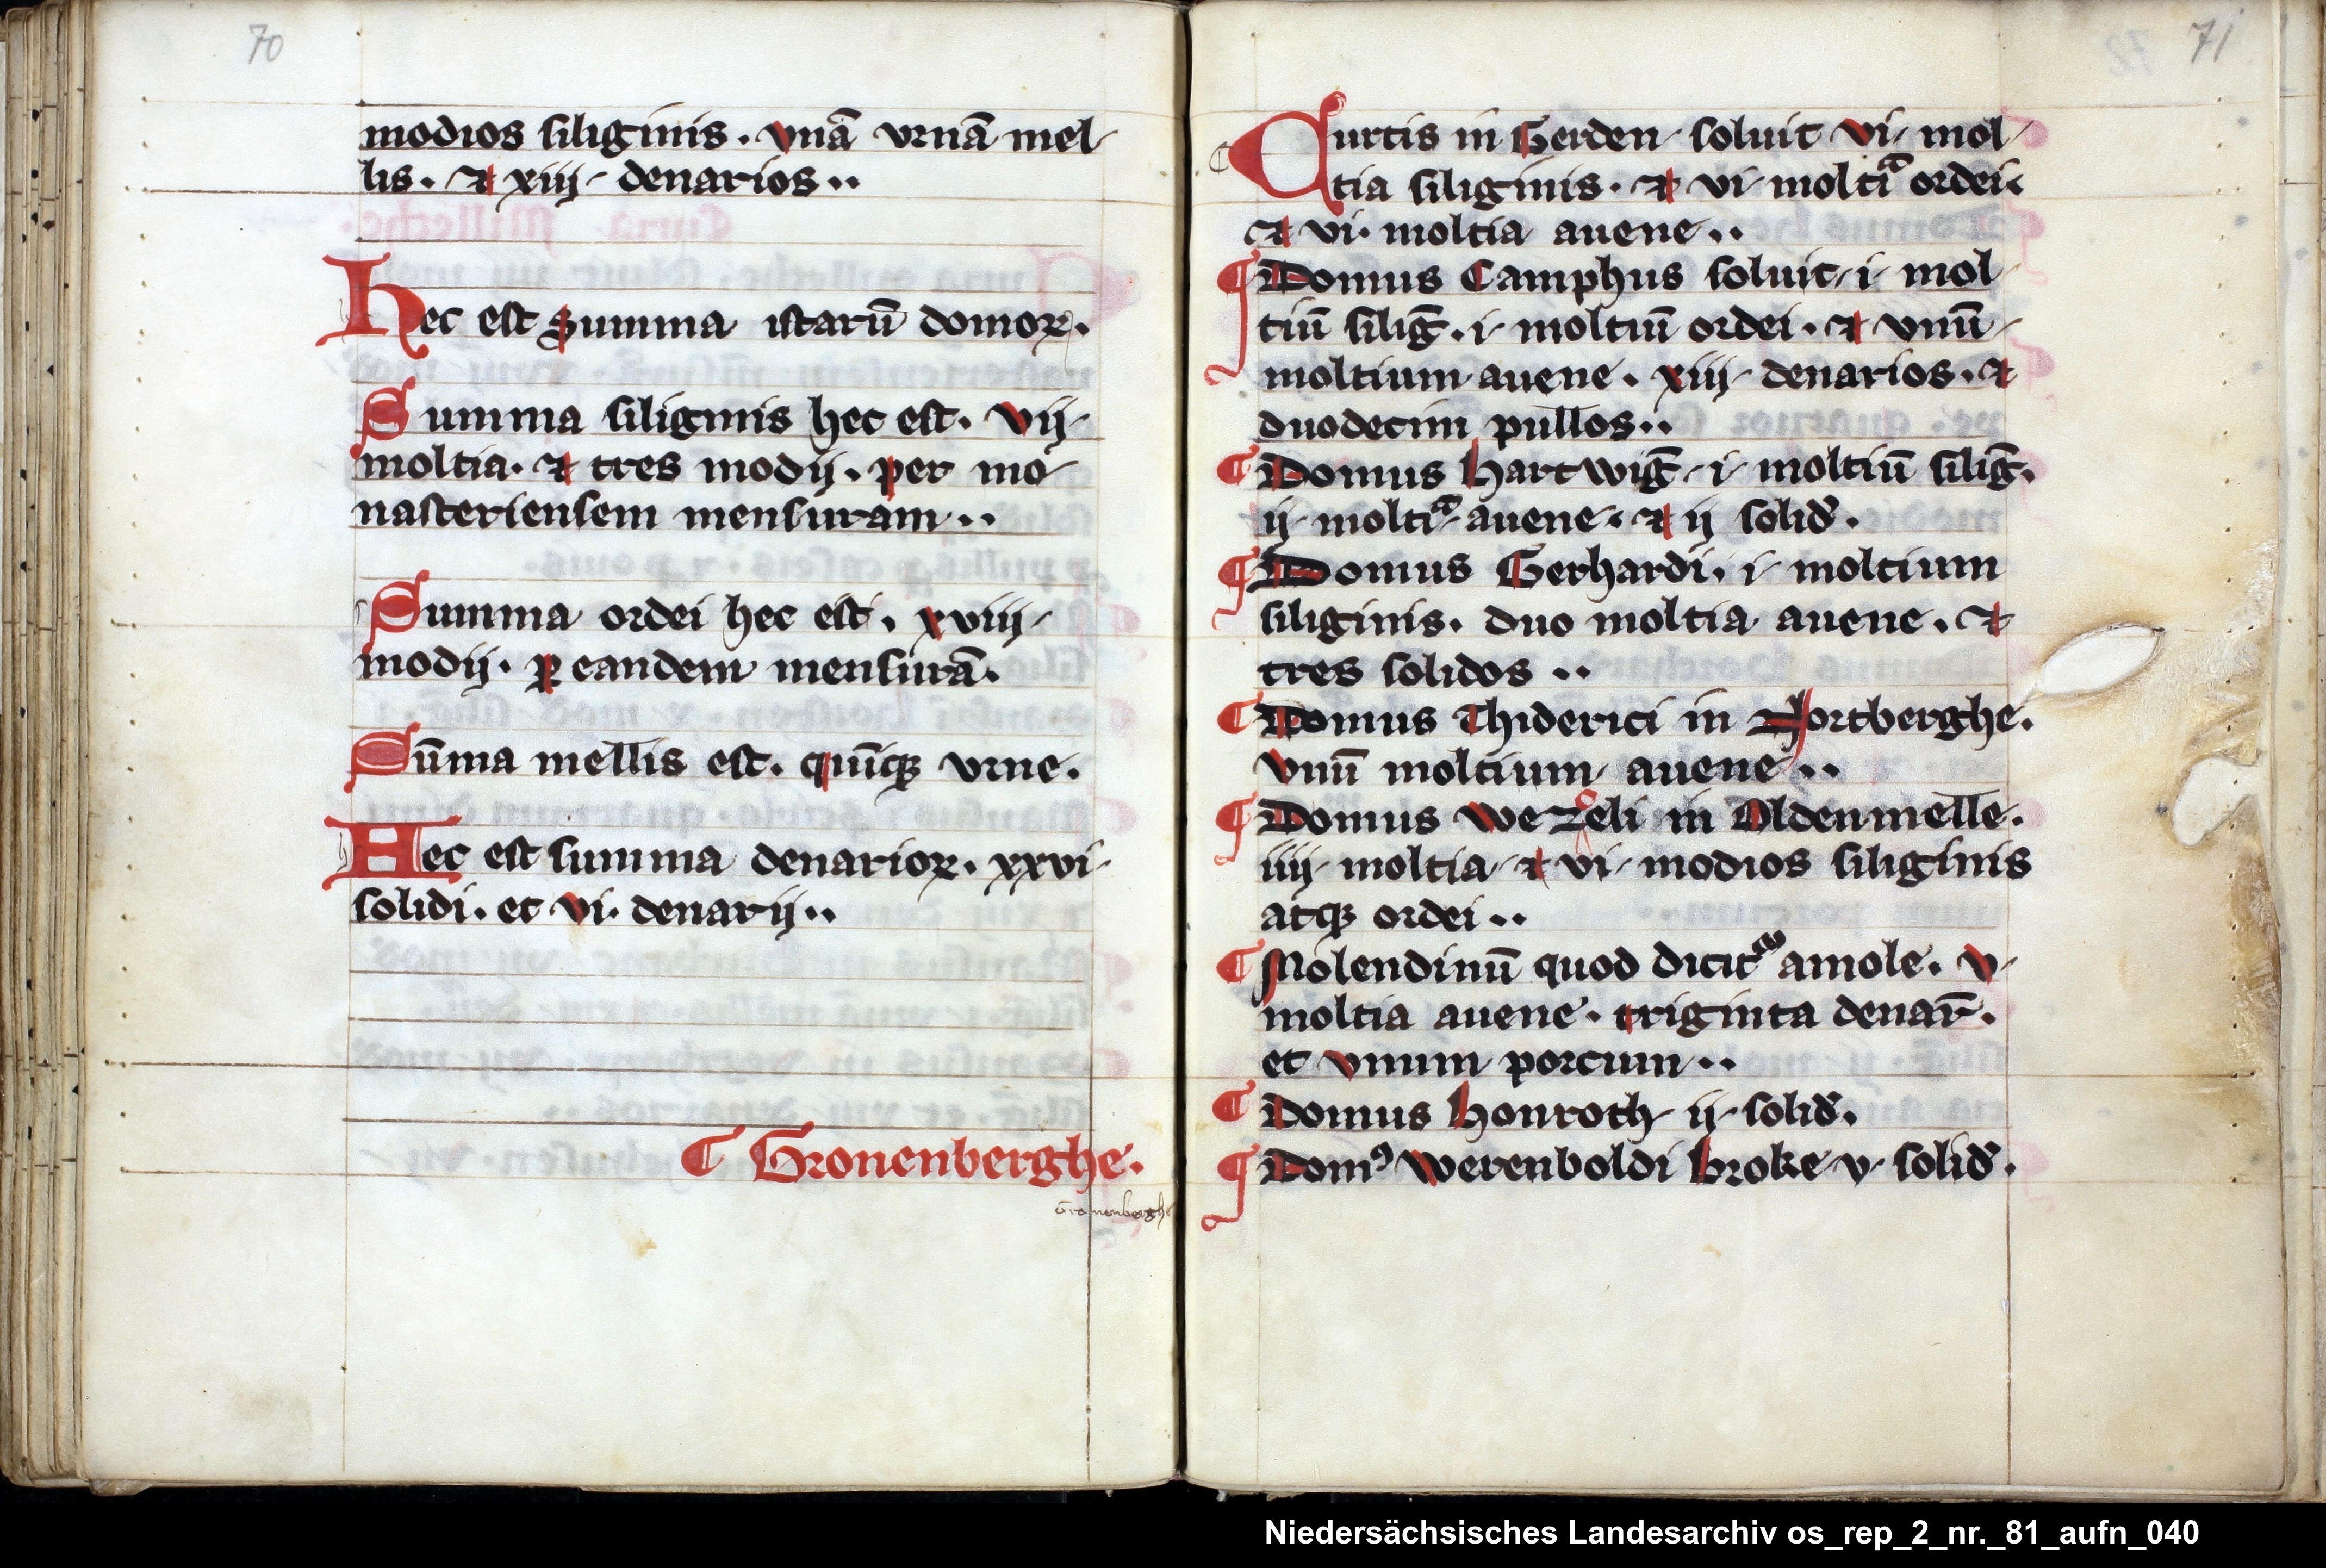 70
modios siliginis. vnā vrnā mel-
lis. ⁊ xiiij denarios..
Hec est summa istarū domoꝝ.
Summa siliginis hec est. vij
moltia. ⁊ tres modij. per mo
nasteriensem mensuram..
Summa ordei hec est. xviij
modij. ꝑ eandem mensurā.
Sūma mellis est. quīqꝫ vrne.
Hec est summa denarioꝝ. xxvi
solidi. et vi. denarij..
¶ Gronenberghe.
Gronenberghe
71
Curtis in Gerden soluit vi mol
tia siliginis. ⁊ vi moltiᵃ ordei.
⁊ vi. moltia auene..
¶ Domus Camphus soluit i mol
tiū silig̅. i moltiū ordei. ⁊ vnū
moltium auene. xiiij denarios. ⁊
duodecim pullos..
¶ Domus hartwig̅ i moltiū silig̅.
ij moltiᵃ auene. ⁊ ij solid̄.
¶ Domus Gerhardi. i moltium
siliginis. duo moltia auene. ⁊
tres solidos ..
¶ Domus Thiderici in Nortberghe.
vnū moltium auene..
¶ Domus wezeli in Oldenmelle.
iiij moltia ⁊ vi modios siliginis
atqꝫ ordei..
¶ Molendinū quod dicit᷑ amole. v
moltia auene. triginta denar̄.
et vnum porcum..
¶ Domus honroth ij solid̄.
¶ Domꝰ werenboldi broke v solid̄.
Niedersächsisches Landesarchiv os_rep_2_nr._81_aufn_040